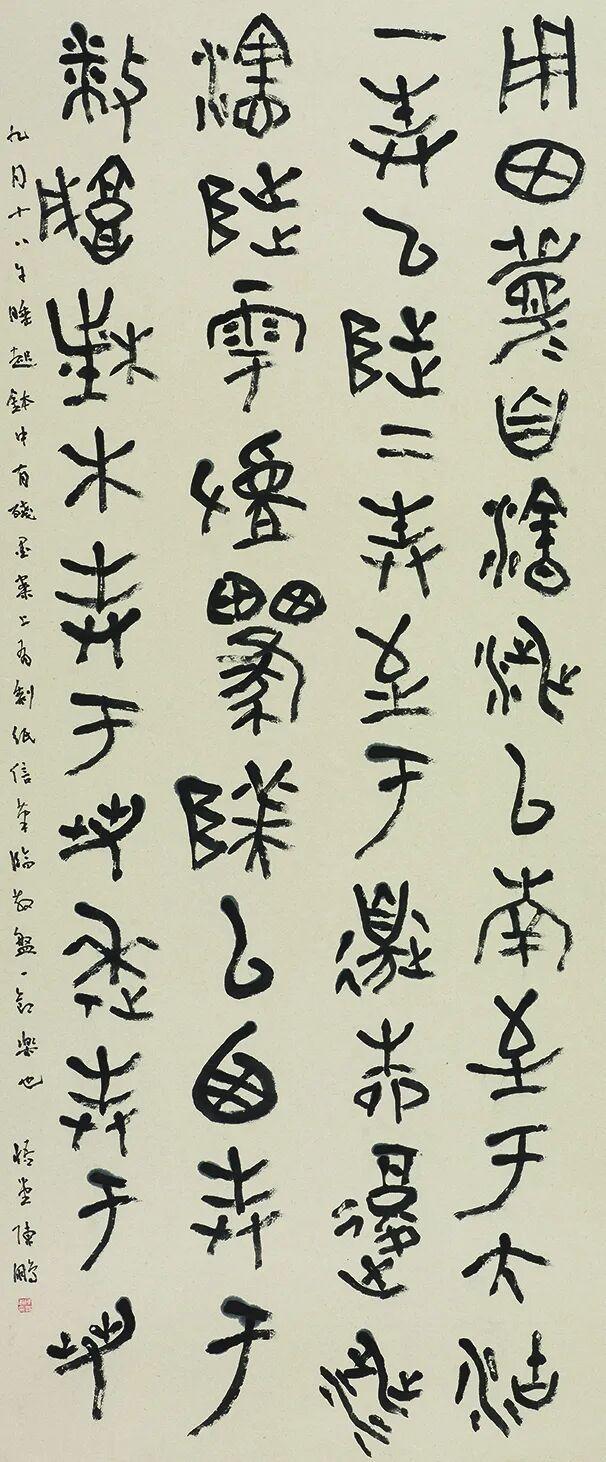 用田眉自瀗涉以南至于大沽
一封以陟二封至于邊柳復涉
瀗陟雩以西封于
城木封于芻逨封于芻
九月十八午睡起鉢中有殘墨案上有剩紙信筆臨散盤一節樂也 悟堂陳鵬